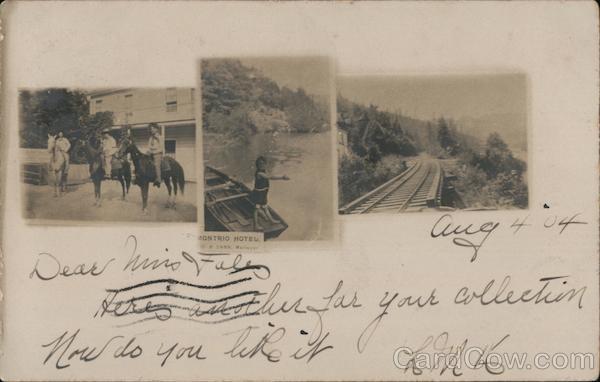 MONTRIO HOTEL
Aug 4 04
Dear Miss Fales
Here's another for your collection
How do you like it
CardCow.com